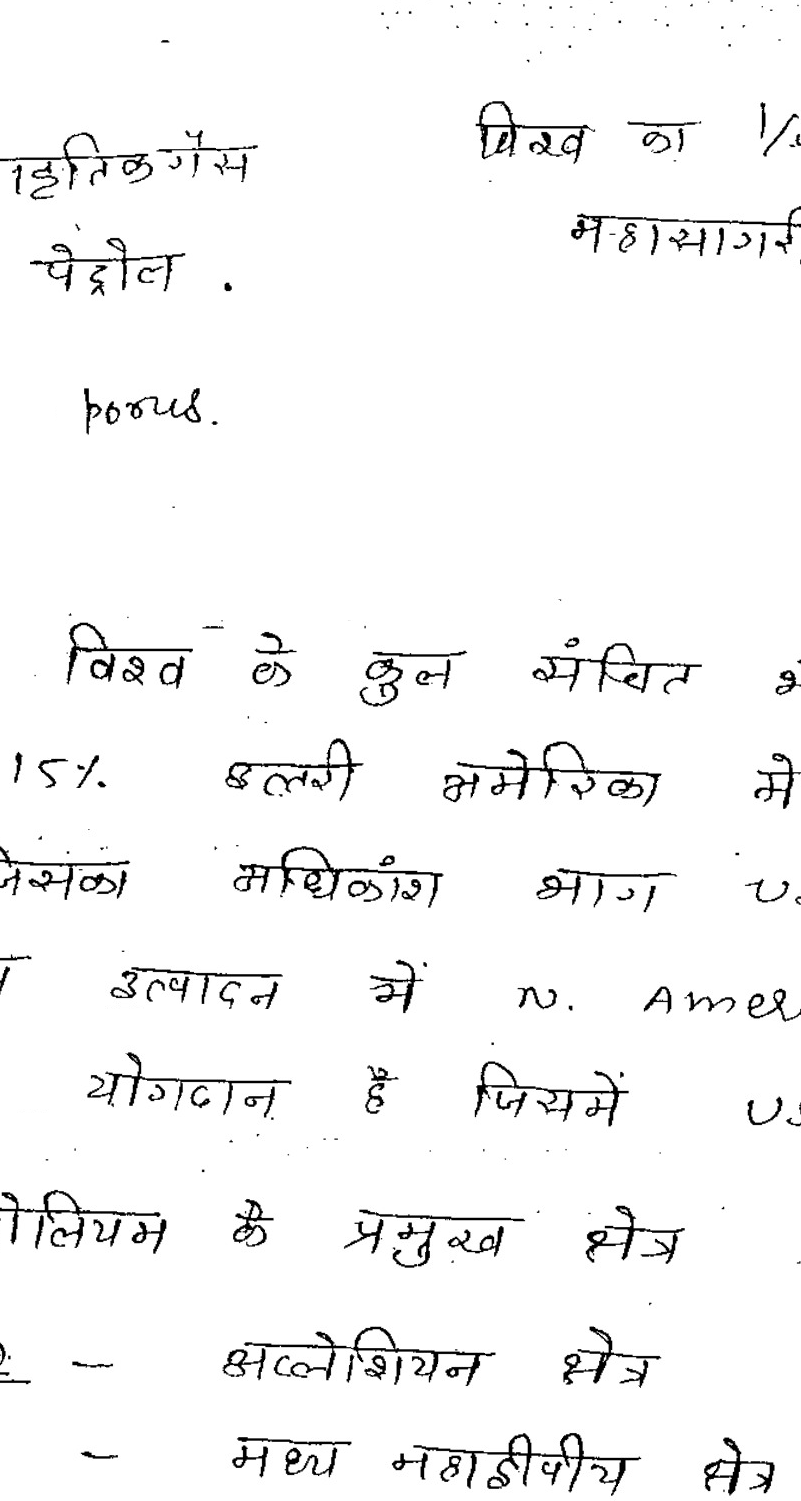 विश्व का 1/
ाकृतिक गैस
महासागरी
पेट्रोल .
porus.
विश्व के कुल संचित भ
15% उत्तरी अमेरिका मे
जिसका अधिकांश भाग U.
उत्पादन में N. Amer
योगदान है जिसमें US
ोलियम के प्रमुख क्षेत्र
- अप्लेशियन क्षेत्र
- मध्य महाद्वीपीय क्षेत्र